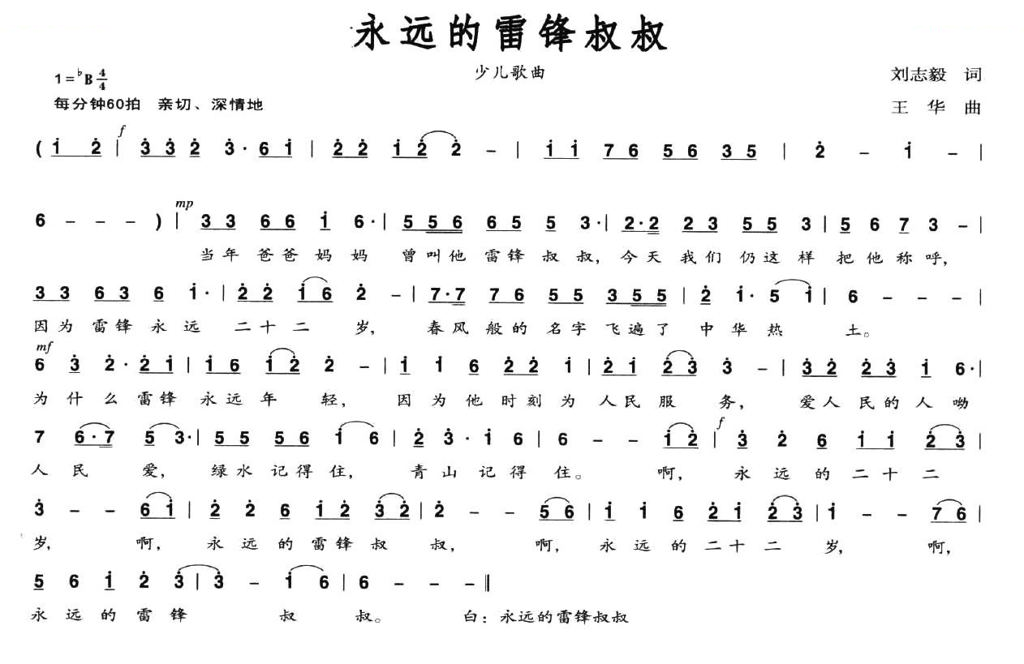 永远的雷锋叔叔
少儿歌曲
1=♭B 4/4
刘志毅 词
每分钟60拍 亲切、深情地
王华 曲
f
( i 2 | 3 3 2 3 · 6 i | 2 2 i 2 2 - | i i 7 6 5 6 3 5 | 2 - i - |
mp
6 - - - ) | 3 3 6 6 i 6 · | 5 5 6 6 5 5 3 · | 2 · 2 2 3 5 5 3 | 5 6 7 3 - |
当年爸爸妈妈 曾叫他雷锋叔叔，今天我们仍这样把他称呼，
3 3 6 3 6 i · | 2 2 i 6 2 - | 7 · 7 7 6 5 5 3 5 5 | 2 i · 5 i | 6 - - - |
因为雷锋永远二十二岁，春风般的名字飞遍了中华热土。
mf
6 3 2 · 2 i | i 6 i 2 2 - | i i 6 2 2 i | 2 i 2 3 3 - | 3 2 2 3 i 6 · |
为什么雷锋永远年轻，因为他时刻为人民服务，爱人民的人呦
f
7 6 · 7 5 3 · | 5 5 5 6 i 6 | 2 3 · i 6 | 6 - - i 2 | 3 2 6 i i 2 3 |
人民爱，绿水记得住，青山记得住。啊，永远的二十二
3 - - 6 i | 2 2 6 i 2 3 2 | 2 - - 5 6 | i i 6 2 i 2 3 | i - - 7 6 |
岁，啊，永远的雷锋叔叔，啊，永远的二十二岁，啊，
5 6 i 2 3 | 3 - i 6 | 6 - - - ‖
永远的雷锋叔叔。白：永远的雷锋叔叔